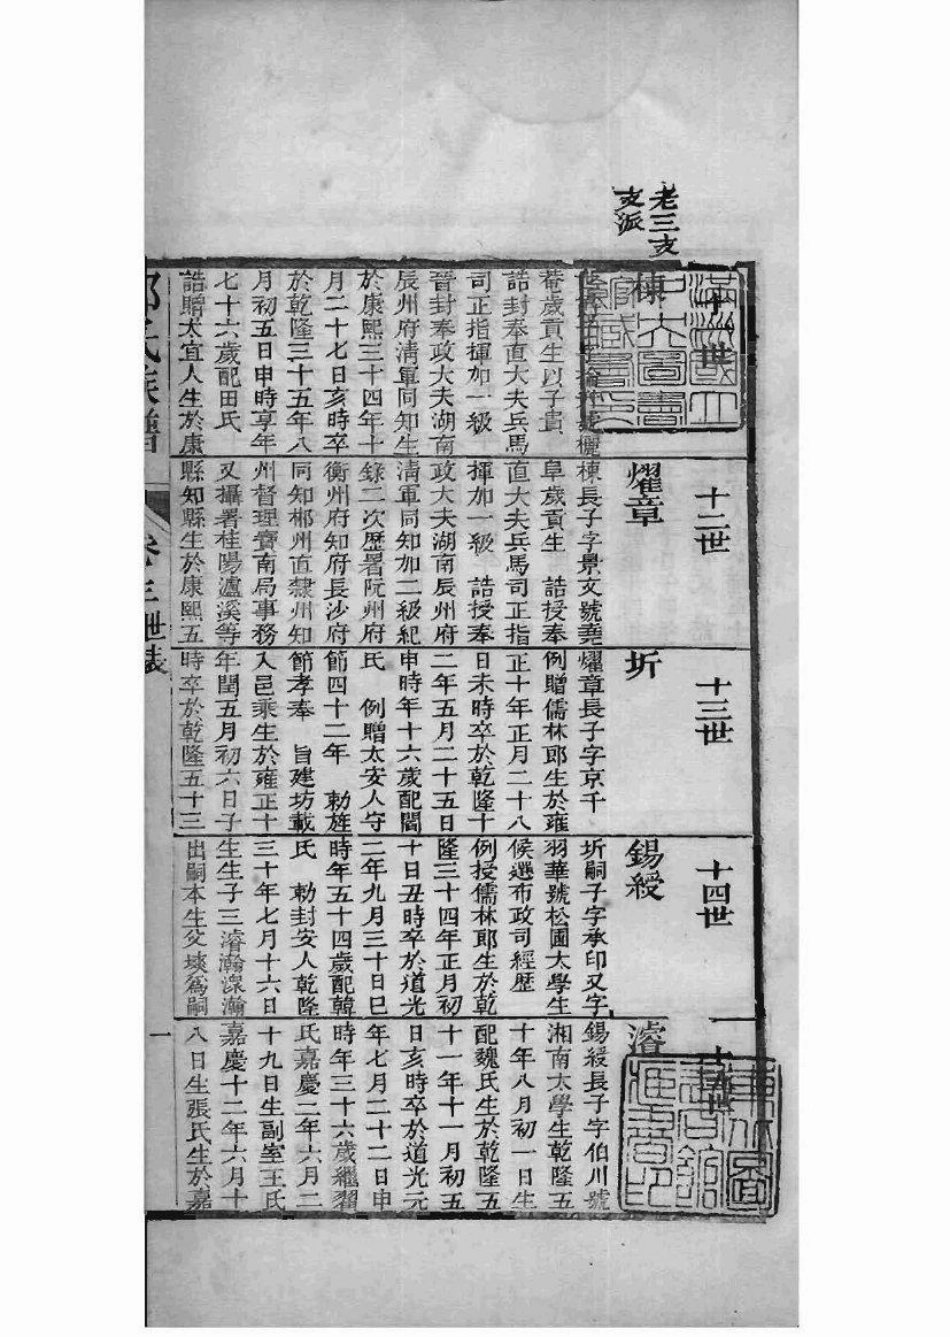 老三支
支派
十一世
棟
菴歲貢生以子貴
誥封奉直大夫兵馬
司正指揮加一級
晉封奉政大夫湖南
辰州府清軍同知生
於康熙三十四年十
月二十七日亥時卒
於乾隆三十五年八
月初五日申時享年
七十六歲配田氏
誥贈太宜人生於康
十二世
燿章
棟長子字景文號堯
阜歲貢生 誥授奉
直大夫兵馬司正指
揮加一級 誥授奉
政大夫湖南辰州府
清軍同知加二級紀
錄二次歷署阮州府
衡州府知府長沙府
同知郴州直隸州知
州督理寶南局事務
又攝署桂陽瀘溪等
縣知縣生於康熙五
十三世
圻
燿章長子字京千
例贈儒林郎生於雍
正十年正月二十八
日未時卒於乾隆十
二年五月二十五日
申時年十六歲配閻
氏 例贈太安人守
節四十二年 勅旌
節孝奉 旨建坊載
入邑乘生於雍正十
年閏五月初六日子
時卒於乾隆五十三
十四世
錫綬
圻嗣子字承印又字
羽華號松圃太學生
候選布政司經歷
例授儒林郎生於乾
隆三十四年正月初
十日丑時卒於道光
二年九月三十日巳
時年五十四歲配韓
氏 勅封安人乾隆
三十年七月十六日
生生子三濬瀚澯瀚
出嗣本生父埮為嗣
十五世
濬
錫綬長子字伯川號
湘南太學生乾隆五
十年八月初一日生
配魏氏生於乾隆五
十一年十一月初五
日亥時卒於道光元
年七月二十二日申
時年三十六歲繼翟
氏嘉慶二年六月二
十九日生副室王氏
嘉慶十二年六月十
八日生張氏生於嘉
氏族譜
卷三世表
一